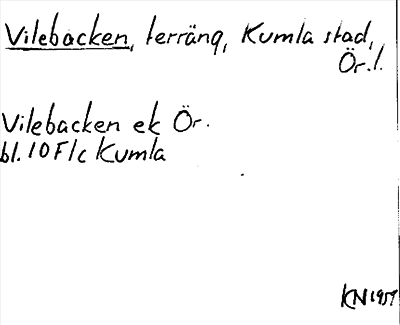 Vilebacken, terräng, Kumla stad,
Ör. l.
Vilebacken ek Ör.
bl. 10 F/c Kumla
KN 1957